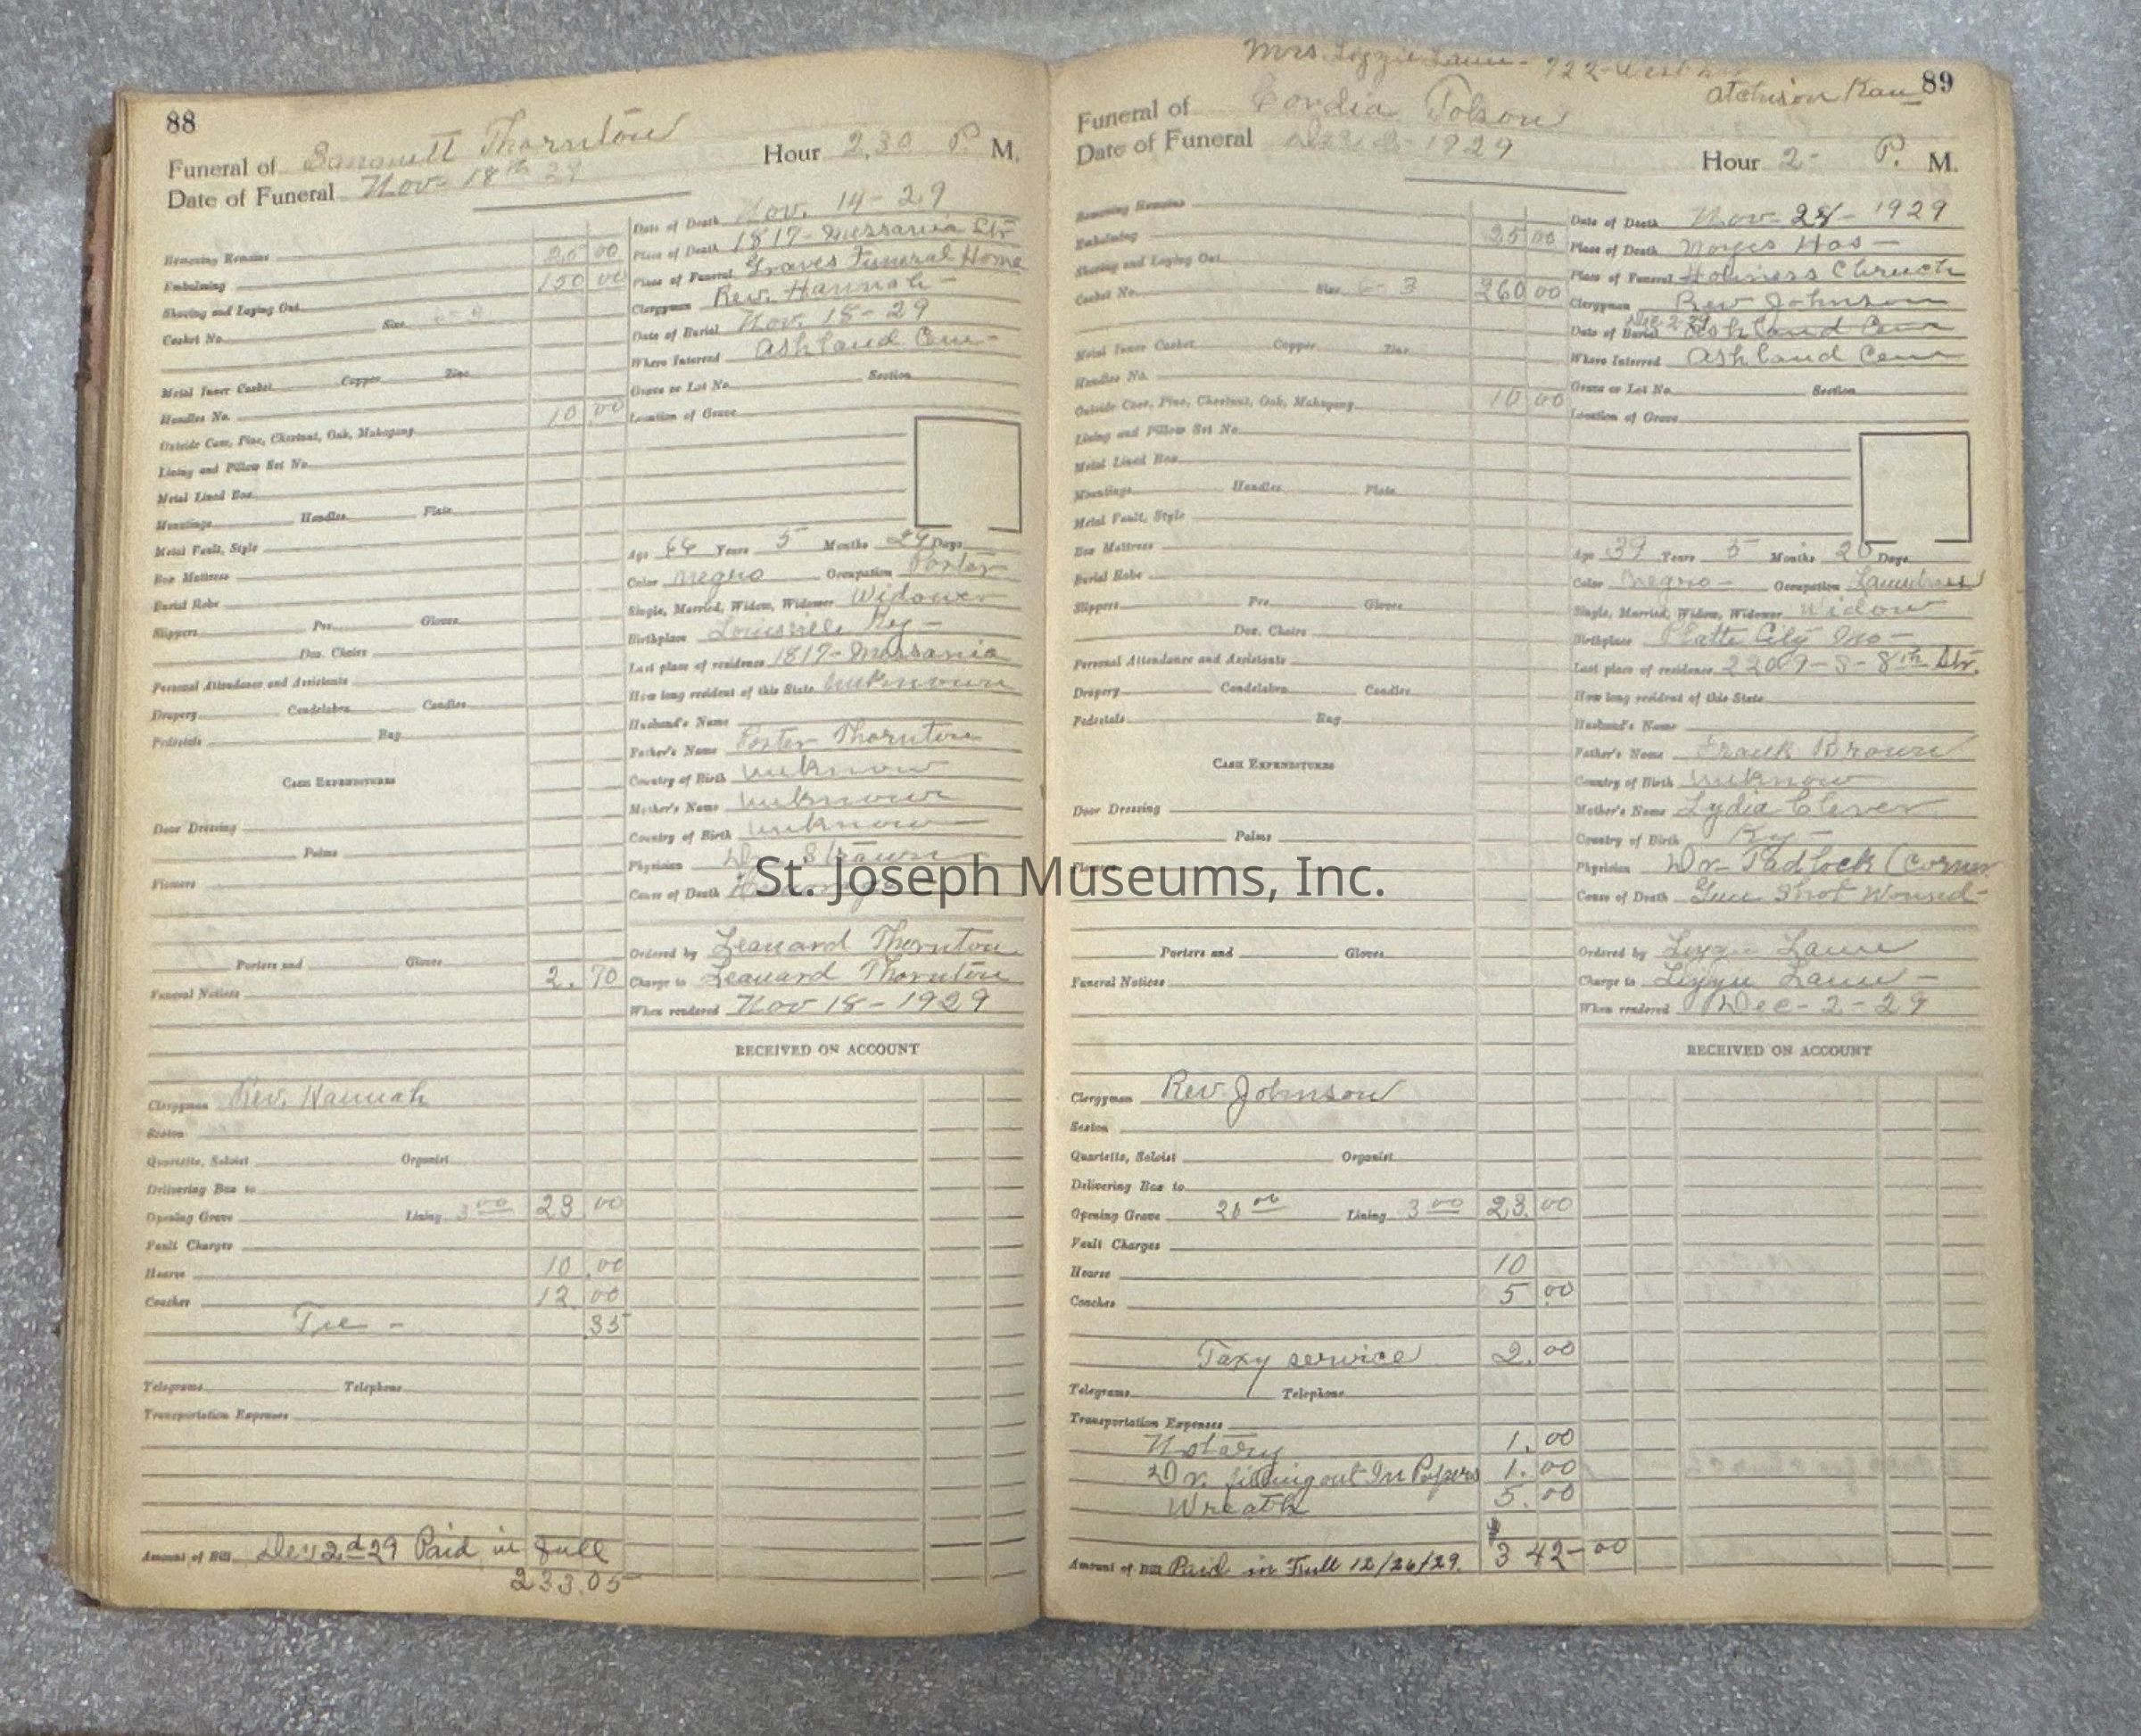 88
Funeral of Thornton
Date of Funeral Nov. 18th 29
Hour 2.30 P. M.
Removing Remains
Embalming 25 00
Shaving and Laying Out 150 00
Casket No. Size
Metal Inner Casket Copper Zinc
Handles No.
Outside Case, Pine, Chestnut, Oak, Mahogany 10 00
Lining and Pillow Set No.
Metal Lined Box
Mountings Handles Plate
Metal Fault, Style
Box Mattress
Burial Robe
Slippers Pre Gloves
Doz. Chairs
Personal Attendance and Assistants
Drapery Candelabra Candles
Pedestals Rug
CASH EXPENDITURES
Door Dressing
Palms
Flowers
Porters and Gloves
Funeral Notices 2.70
Clergyman Rev. Hannah
Sexton
Quartette, Soloist Organist
Delivering Box to
Opening Grave Lining 3 00 23.00
Fault Charges
Hearse 10.00
Coaches 12.00
35
Telegrams Telephone
Transportation Expenses
Amount of Bill 2d 29 Paid in full
233.05
Date of Death Nov. 14-29
Place of Death 1817-
Place of Funeral Graves Funeral Home
Clergyman Rev. Hannah-
Date of Burial Nov. 18-29
Where Interred Ashland Cem-
Grave or Lot No. Section
Location of Grave
Age 66 Years 5 Months 29 Days
Color Negro Occupation Porter
Single, Married, Widow, Widower Widower
Birthplace Louisville Ky-
Last place of residence 1817-
How long resident of this State unknown
Husband's Name
Father's Name Porter Thornton
Country of Birth unknow
Mother's Name unknown
Country of Birth unknow
Physician Dr.
Cause of Death
Ordered by Leanard Thornton
Charge to Leanard Thornton
When rendered Nov 18-1929
RECEIVED ON ACCOUNT
St. Joseph Museums, Inc.
Mrs. Lizzie - 722-West
Atchison Kan
89
Funeral of Cordia Tolson
Date of Funeral 1929
Hour 2- P. M.
Removing Remains
Embalming 25 00
Shaving and Laying Out
Casket No. Size 6-3 260 00
Metal Inner Casket Copper Zinc
Handles No.
Outside Case, Pine, Chestnut, Oak, Mahogany 10 00
Lining and Pillow Set No.
Metal Lined Box
Mountings Handles Plate
Metal Fault, Style
Box Mattress
Burial Robe
Slippers Pre Gloves
Doz. Chairs
Personal Attendance and Assistants
Drapery Candelabra Candles
Pedestals Rug
CASH EXPENDITURES
Door Dressing
Palms
Porters and Gloves
Funeral Notices
Clergyman Rev Johnson
Sexton
Quartette, Soloist Organist
Delivering Box to
Opening Grave 20 00 Lining 3 00 23.00
Fault Charges
Hearse 10
Coaches 5.00
Taxy service 2.00
Telegrams Telephone
Transportation Expenses
Notary 1.00
Dr. filling out In Papers 1.00
Wreath 5.00
Amount of Bill Paid in Full 12/26/29. $342-00
Date of Death Nov-28-1929
Place of Death Noyes Hos-
Place of Funeral Holiness Chruch
Clergyman Rev Johnson
Date of Burial Ashland Cem
Where Interred Ashland Cem
Grave or Lot No. Section
Location of Grave
Age 39 Years 5 Months 20 Days
Color Negro- Occupation Laundress
Single, Married, Widow, Widower Widow
Birthplace Platte City Mo-
Last place of residence 2209-S-8th Str.
How long resident of this State
Husband's Name
Father's Name Frank Brown
Country of Birth unknow
Mother's Name Lydia Clever
Country of Birth Ky-
Physician Dr- Padlock (Corner
Cause of Death Gun Shot Wound-
Ordered by
Charge to
When rendered Dec-2-29
RECEIVED ON ACCOUNT